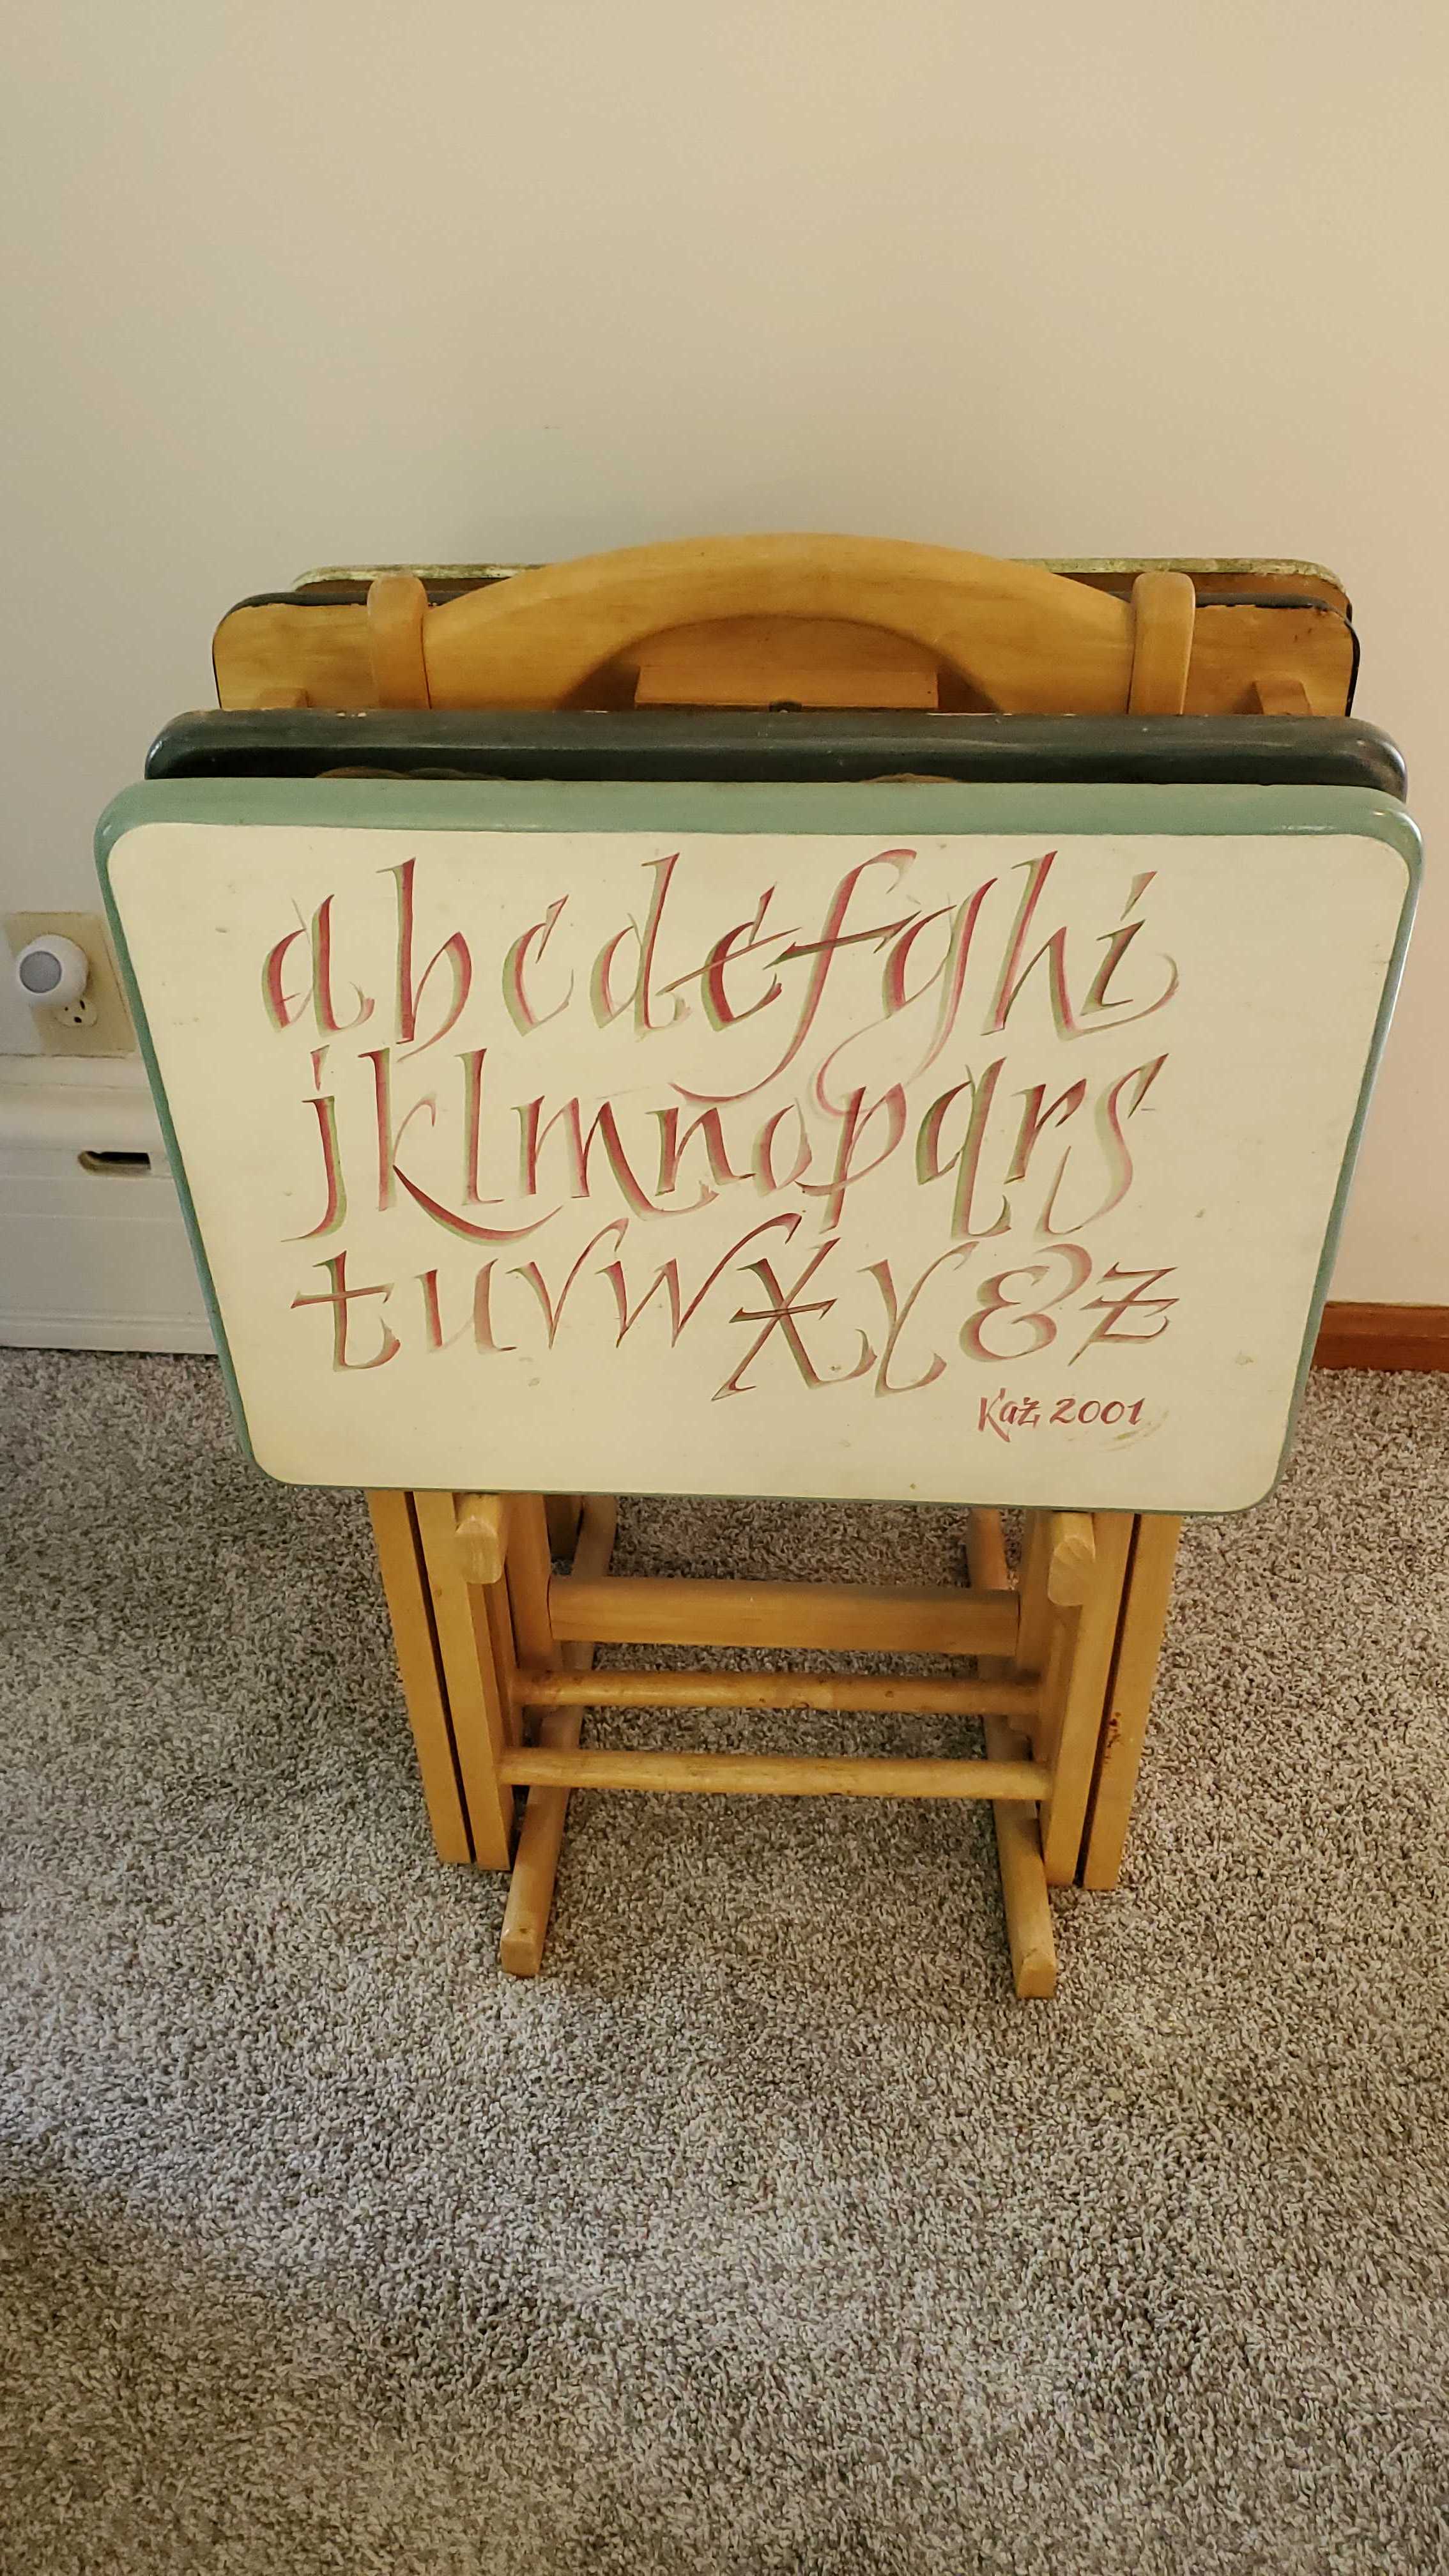 abcdefghi
jklmnopqrs
tuvwxy&z
Kaz 2001